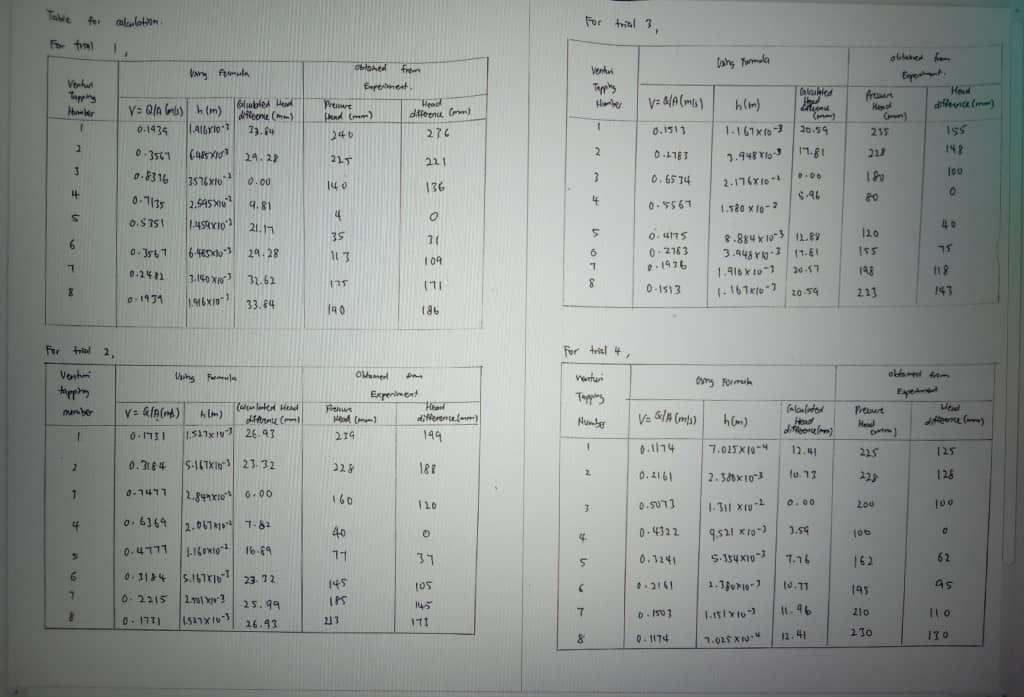 Table for calculation.
For trial 1,
Venturi Tapping Number | Using Formula | Obtained from Experiment.
V = Q/A (m/s) | h (m) | Calculated Head difference (mm) | Pressure Head (mm) | Head difference (mm)
1 | 0.1939 | 1.916x10-3 | 33.84 | 240 | 236
2 | 0.3567 | 6.485x10-3 | 29.28 | 225 | 221
3 | 0.8376 | 3576x10-2 | 0.00 | 140 | 136
4 | 0.7135 | 2.595x10-2 | 9.81 | 4 | 0
5 | 0.5351 | 1.459x10-2 | 21.17 | 35 | 31
6 | 0.3567 | 6.485x10-3 | 29.28 | 113 | 109
7 | 0.2482 | 3.140x10-3 | 32.62 | 175 | 171
8 | 0.1939 | 1.916x10-3 | 33.84 | 190 | 186
For trial 2,
Venturi tapping number | Using Formula | Obtained from Experiment
V = Q/A (m/s) | h (m) | Calculated Head difference (mm) | Pressure Head (mm) | Head difference (mm)
1 | 0.1731 | 1.527x10-3 | 26.93 | 239 | 199
2 | 0.3184 | 5.167x10-3 | 23.32 | 228 | 188
3 | 0.7477 | 2.849x10-2 | 0.00 | 160 | 120
4 | 0.6369 | 2.067x10-2 | 7.82 | 40 | 0
5 | 0.4777 | 1.160x10-2 | 16.89 | 77 | 37
6 | 0.3184 | 5.167x10-3 | 23.32 | 145 | 105
7 | 0.2215 | 2.501x10-3 | 25.99 | 185 | 145
8 | 0.1731 | 1.527x10-3 | 26.93 | 213 | 173
For trial 3,
Venturi Tapping Number | Using Formula | obtained from Experiment.
V = Q/A (m/s) | h (m) | Calculated Head difference (mm) | Pressure Head (mm) | Head difference (mm)
1 | 0.1513 | 1.167x10-3 | 20.59 | 235 | 155
2 | 0.2783 | 3.948x10-3 | 17.81 | 228 | 148
3 | 0.6534 | 2.176x10-2 | 0.00 | 180 | 100
4 | 0.5567 | 1.580x10-2 | 5.96 | 80 | 0
5 | 0.4175 | 8.884x10-3 | 12.88 | 120 | 40
6 | 0.2763 | 3.948x10-3 | 17.81 | 155 | 75
7 | 0.1936 | 1.910x10-3 | 20.57 | 198 | 118
8 | 0.1513 | 1.167x10-3 | 20.59 | 223 | 143
For trial 4,
Venturi Tapping Number | Using Formula | obtained from Experiment
V = Q/A (m/s) | h (m) | Calculated Head difference (mm) | Pressure Head (mm) | Head difference (mm)
1 | 0.1174 | 7.025x10-4 | 12.41 | 225 | 125
2 | 0.2161 | 2.380x10-3 | 10.73 | 228 | 128
3 | 0.5073 | 1.311x10-2 | 0.00 | 200 | 100
4 | 0.4322 | 9.521x10-3 | 3.59 | 100 | 0
5 | 0.3241 | 5.354x10-3 | 7.76 | 162 | 62
6 | 0.2161 | 2.380x10-3 | 10.77 | 195 | 95
7 | 0.1503 | 1.151x10-3 | 11.96 | 210 | 110
8 | 0.1174 | 7.025x10-4 | 12.41 | 230 | 130